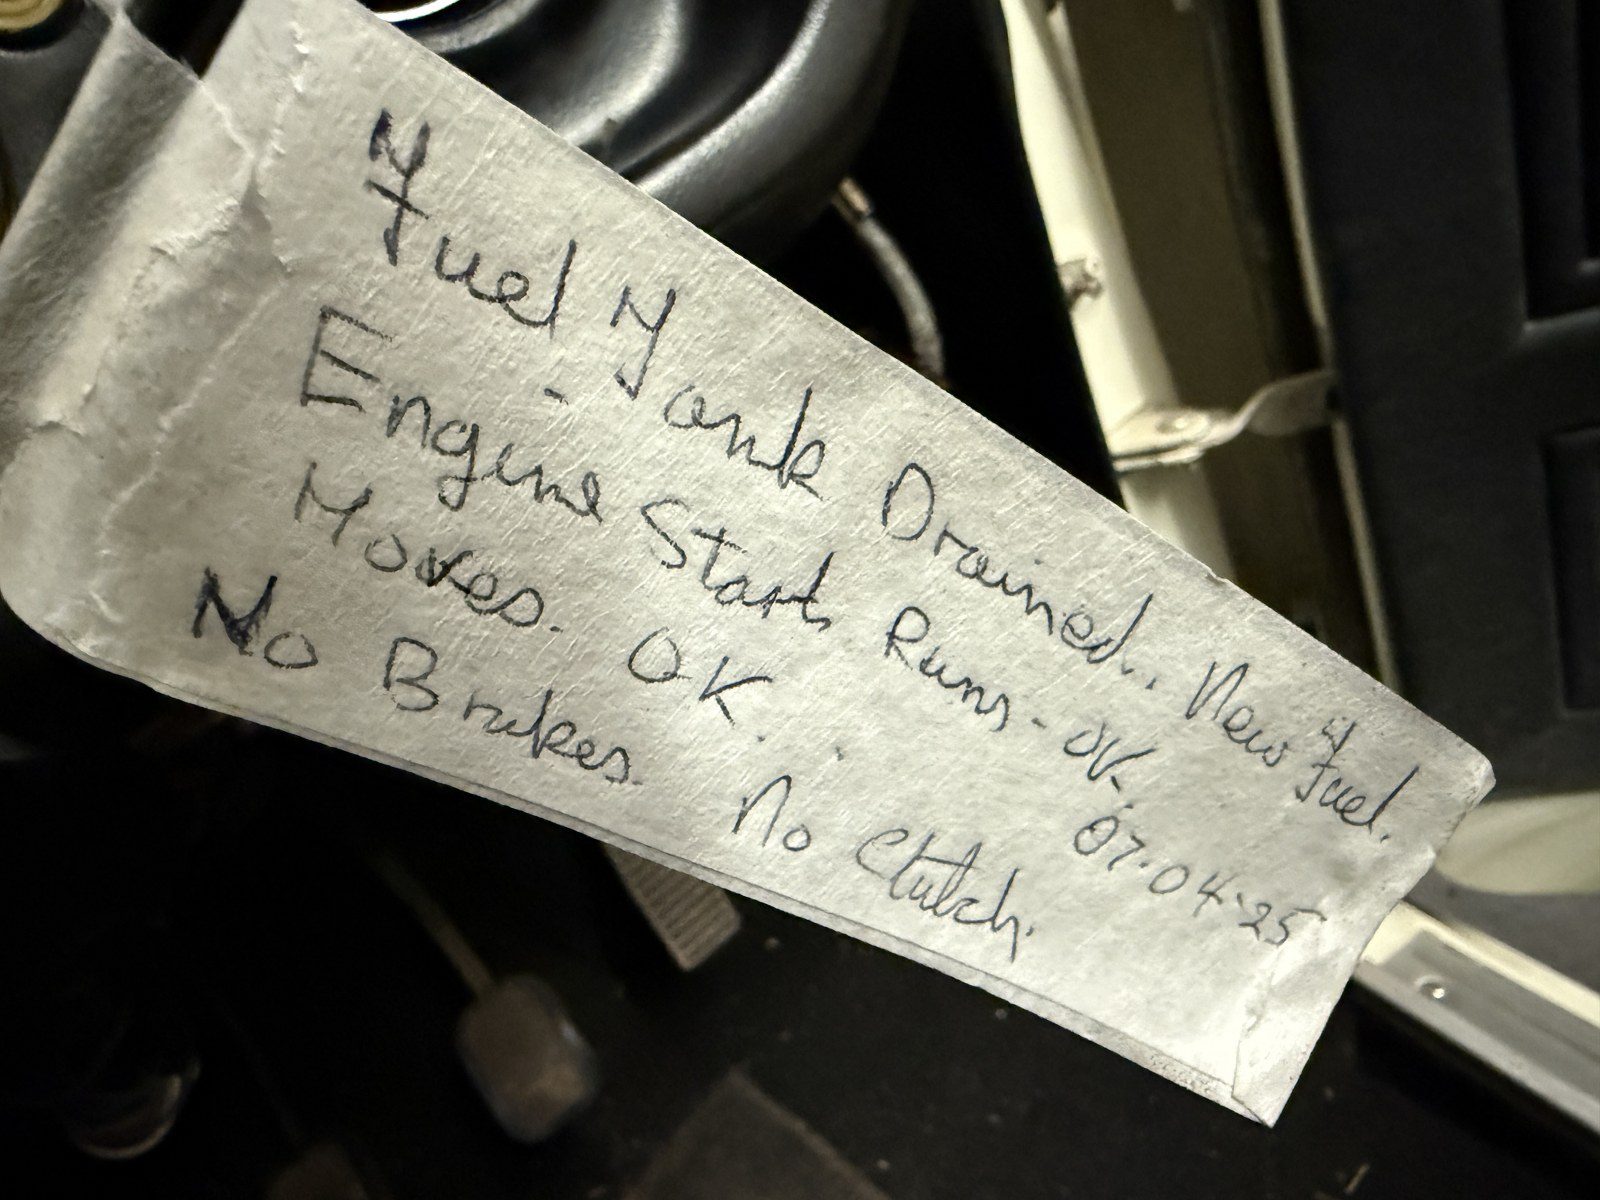 Fuel Tank Drained.. New Fuel.
Engine Starts Runs - OK.
Moves. OK.. 07.04.25
No Brakes. No Clutch.